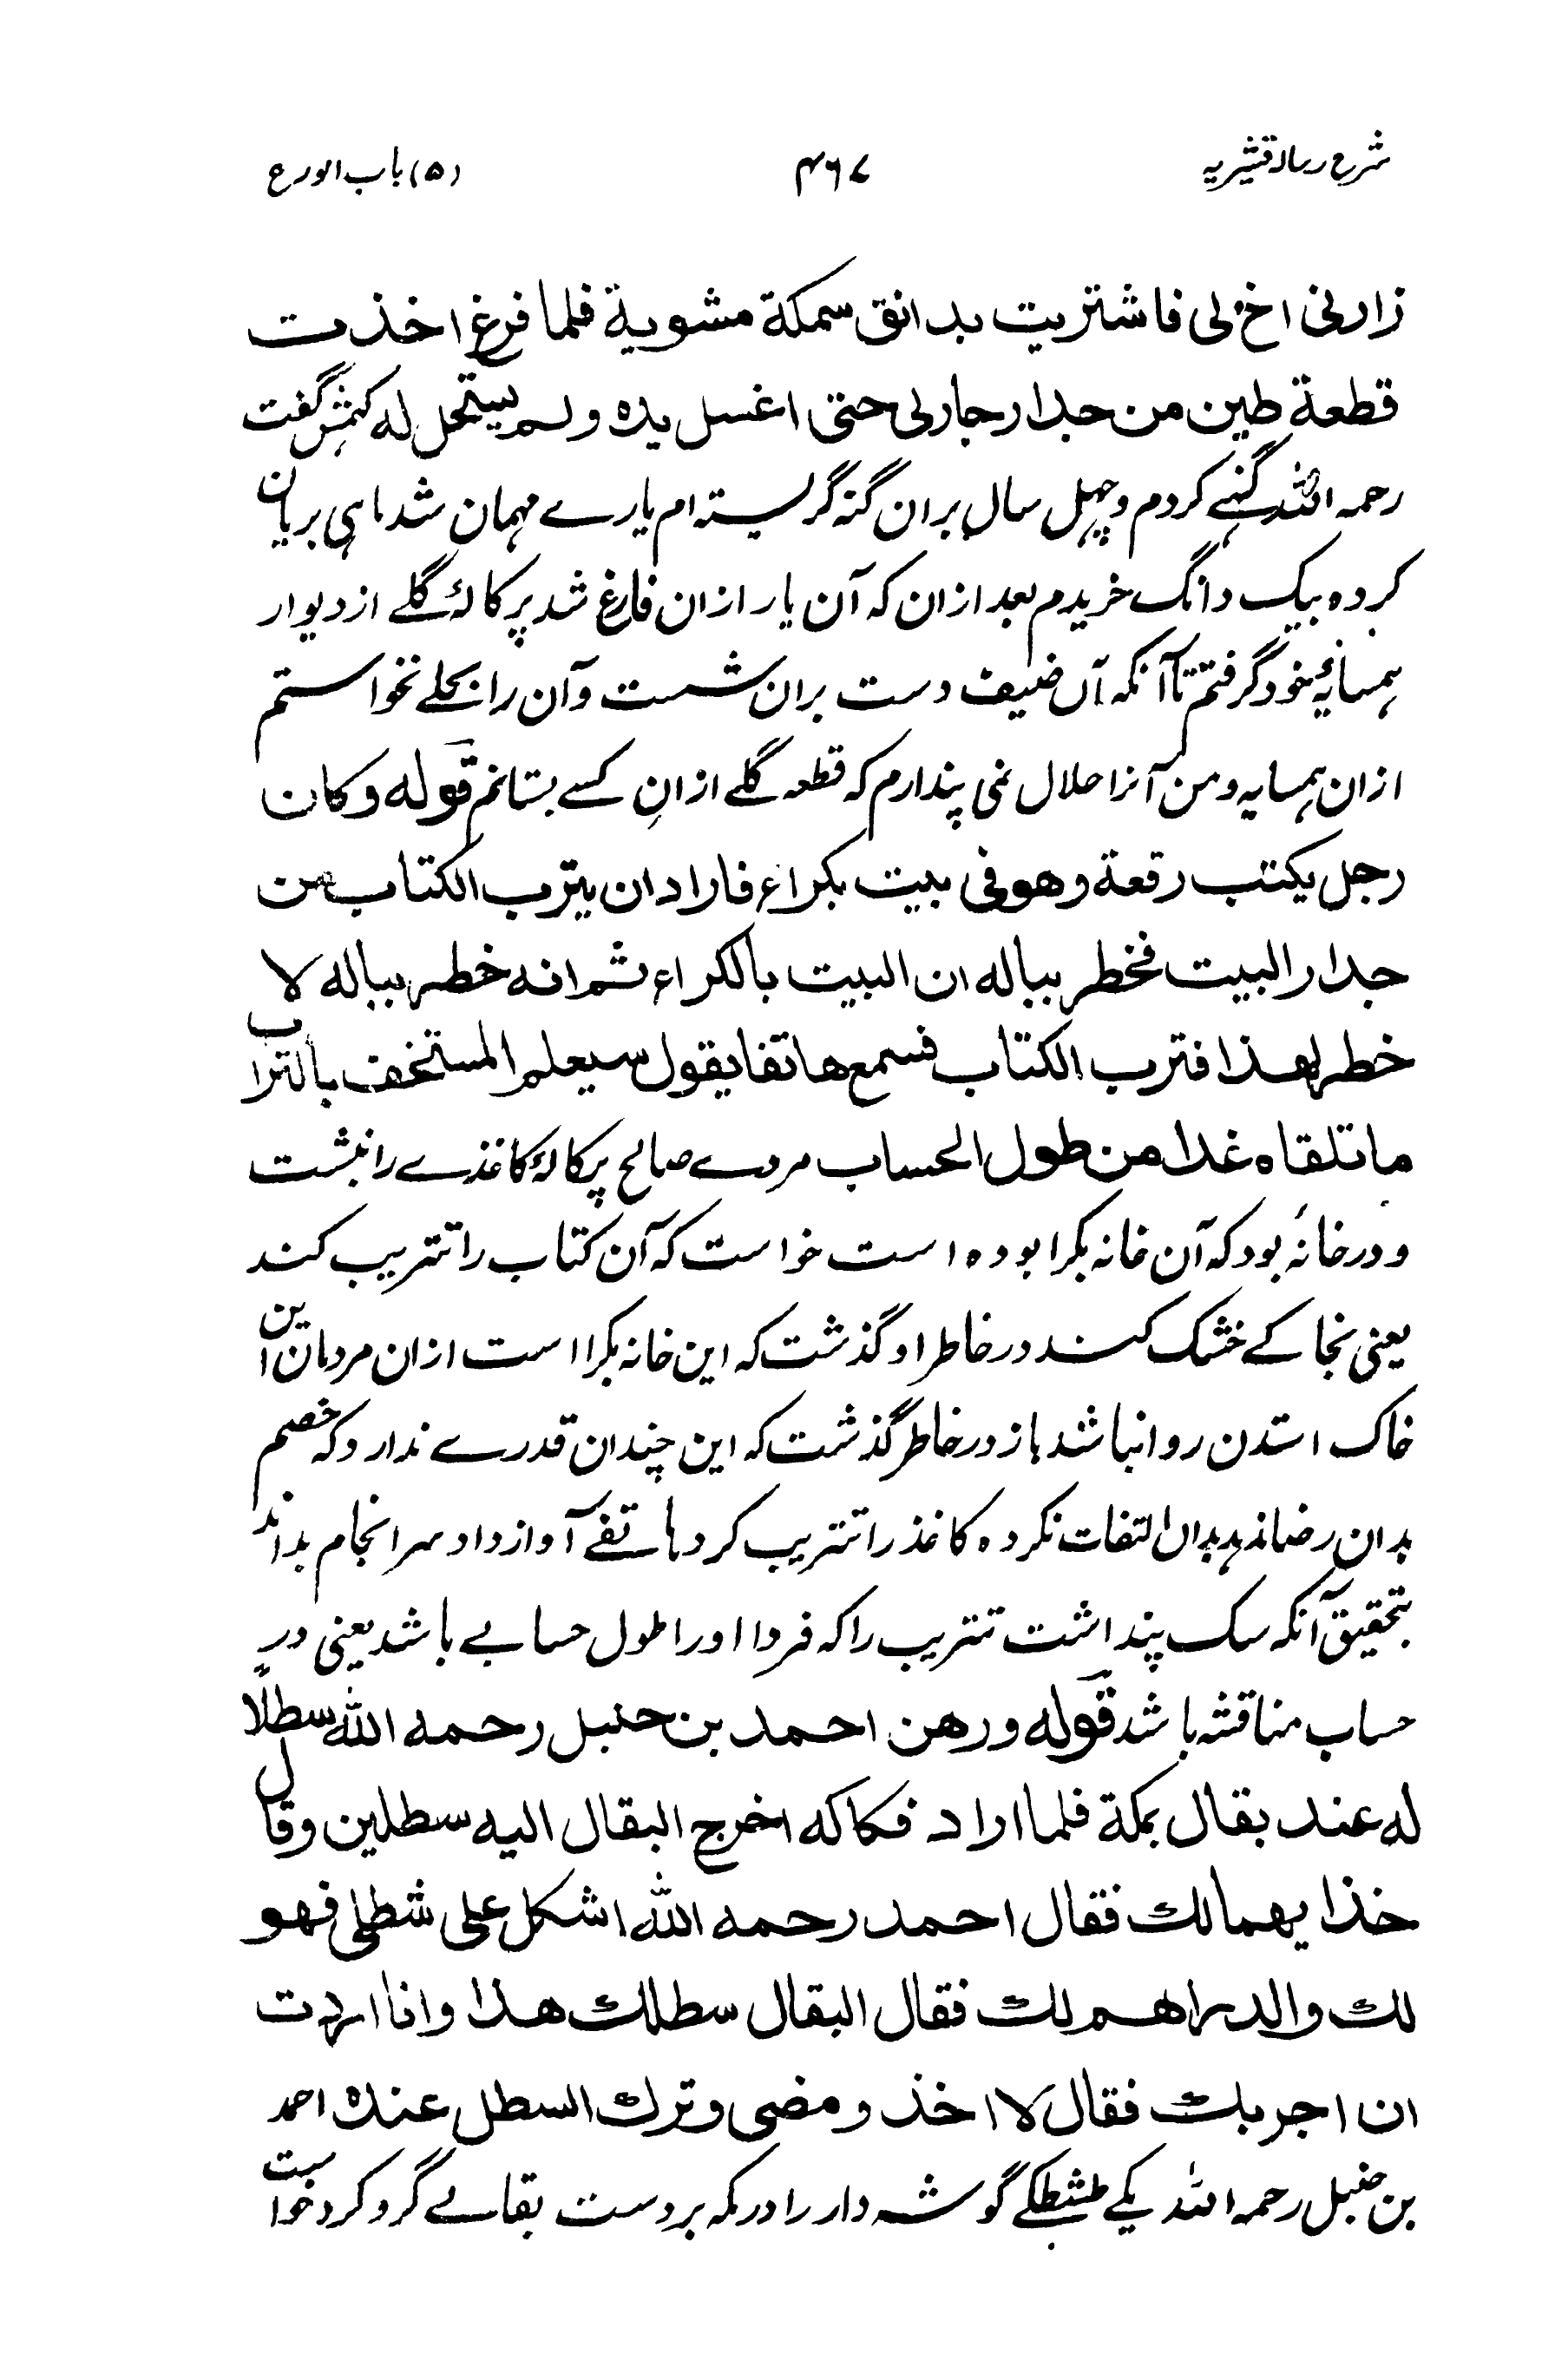 شرح رسالہ قشیریہ ۴۶۷ (۵) باب الورع
زارنی اخ لی فاشتریت بدانق سمکة مشویة فلما فرغ اخذت
قطعة طین من جدار جار لی حتی اغسل یدہ ولم یستحل لہ کہمش گفت
رحمہ اللہ گنہے کردم و چہل سال بران گنہ گریستہ ام یارے مہمان شد ماہی بریان
کردہ بیک دانگ خریدم بعد ازان کہ آن یار ازان فارغ شد پرکالۂ گلے از دیوار
ہمسایۂ خود گرفتم تا آنکہ آں ضیف دست بران شست و آن را بحلے نخواستم
ازان ہمسایہ و من آنرا حلال نمی پندارم کہ قطعہ گلے ازانِ کسے بستانم قولہ وکان
رجل یکتب رقعة وھو فی بیت بکراء فاراد ان یترب الکتاب من
جدار البیت فخطر ببالہ ان البیت بالکراء ثم انہ خطر ببالہ لا
خطر لھذا فترب الکتاب فسمع ھاتفا یقول سیعلم المستخف بالتراب
ما تلقاہ غدا من طول الحساب مردے صالح پرکالۂ کاغذے را نبشت
و در خانۂ بود کہ آن خانہ بکرا بودہ است خواست کہ آن کتاب را تتریب کند
یعنی بخاکے خشک کند در خاطر او گذشت کہ این خانہ بکرا است ازان مردمان این
خاک استدن روا نباشد باز در خاطر گذشت کہ این چندان قدرے ندارد کہ خصم
بدان رضا ندہد بداں التفات نکردہ کاغذ را تتریب کرد ہاتفے آواز داد سرانجام بداند
بتحقیق آنکہ سبک پنداشت تتریب را کہ فردا اورا طول حسابے باشد یعنی در
حساب مناقشہ باشد قولہ ورھن احمد بن حنبل رحمہ اللہ سطلًا
لہ عند بقال بمکة فلما اراد فکاکہ اخرج البقال الیہ سطلین وقال
خذ ایھما لك فقال احمد رحمہ اللہ اشکل علی شطلی فھو
لك والدراھم لك فقال البقال سطلك ھذا وانا اردت
ان اجربك فقال لا اخذ ومضی وترك السطل عندہ احمد
بن حنبل رحمہ اللہ یکے طشطکے گوشہ دار را در مکہ بر دست بقالے گرو کرد خواست